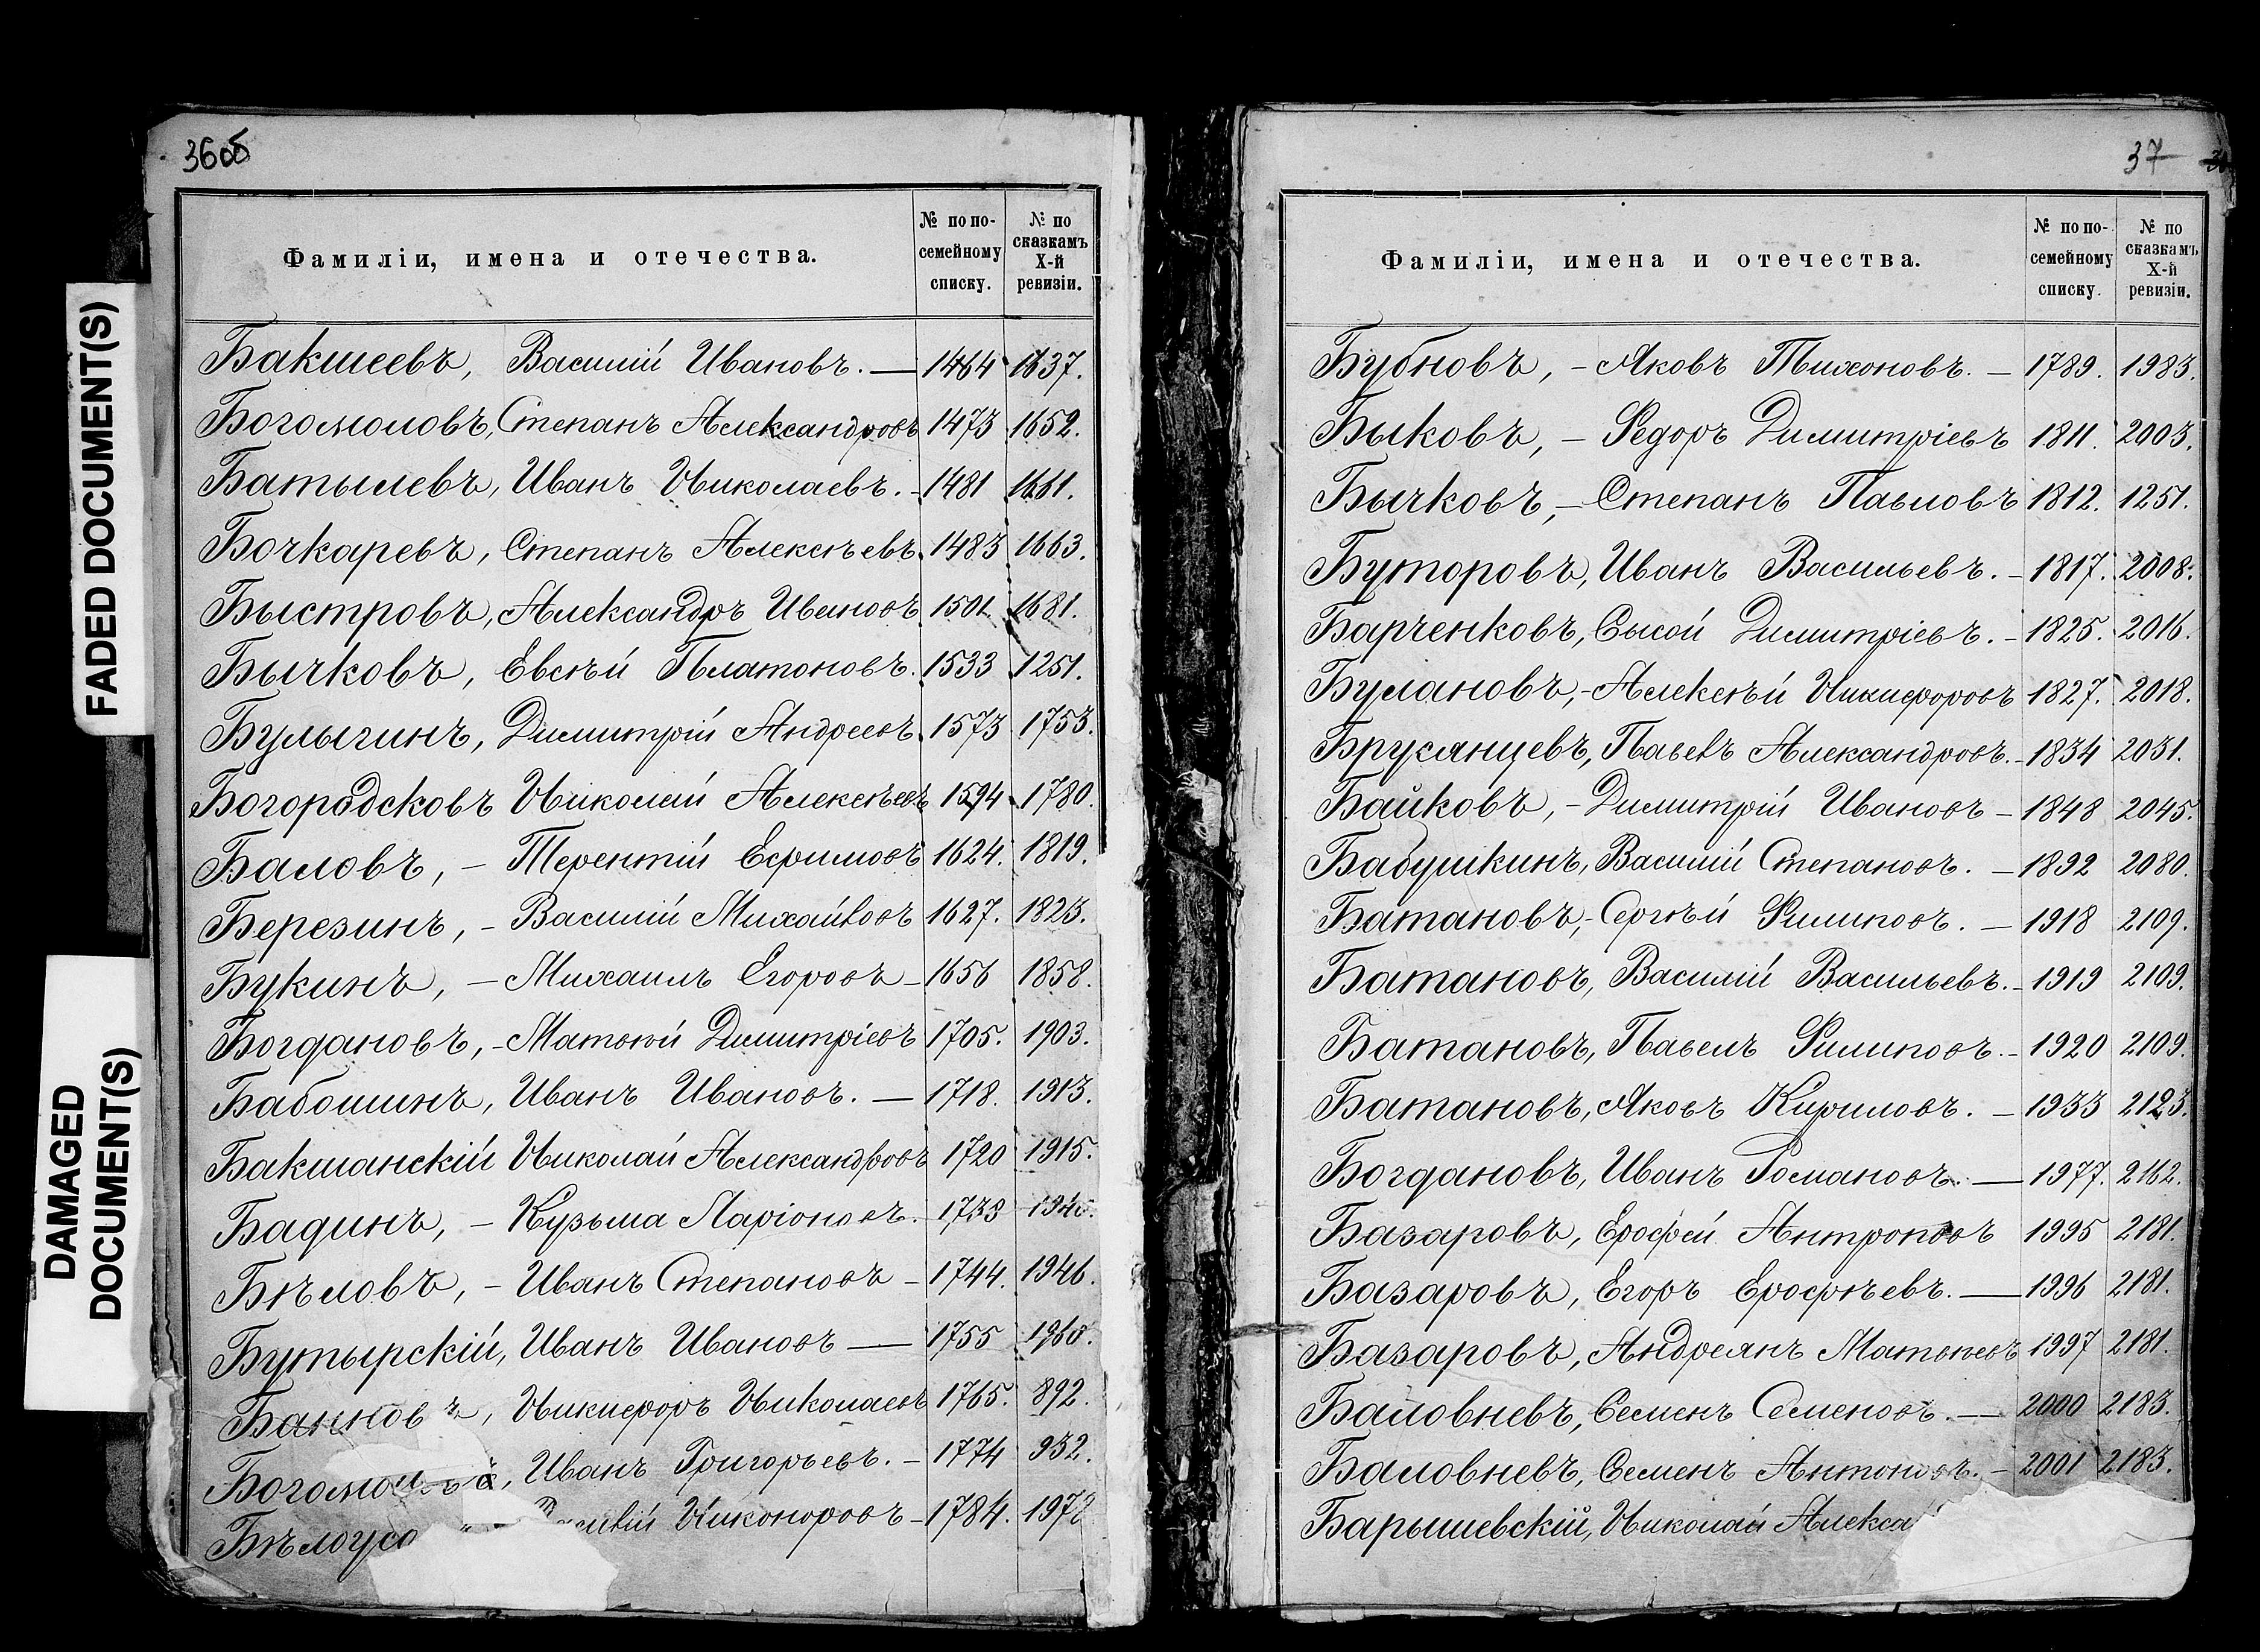 FADED DOCUMENT(S)
DAMAGED
DOCUMENT(S)
36об
Фамиліи, имена и отечества.
№ по по-
семейному
списку.
№ по
сказкамъ
X-й
ревизіи.
Бакшеевъ, Василій Ивановъ. — 1464 1637.
Богомоловъ, Степанъ Александровъ 1473 1652.
Батышевъ, Иванъ Николаевъ. - 1481 1661.
Бочкаревъ, Степанъ Алексѣевъ. 1483 1663.
Быстровъ, Александръ Ивановъ 1501 1681.
Бычковъ, Евсѣй Платоновъ. 1533 1251.
Булыгинъ, Димитрій Андреевъ. 1573 1753.
Богородсковъ Николай Алексѣевъ 1594 1780.
Баловъ, - Терентій Ефимовъ 1624. 1819.
Березинъ, - Василій Михайловъ 1627. 1823.
Букинъ, - Михаилъ Егоровъ - 1656 1858.
Богдановъ, - Матвѣй Димитріевъ 1705. 1903.
Бабошинъ, Иванъ Ивановъ. — 1718. 1913.
Бакшанскій Николай Александровъ 1720 1915.
Бадинъ, - Кузьма Ларіоновъ. - 1738 1940.
Бѣловъ, - Иванъ Степановъ - 1744. 1946.
Бутырскій, Иванъ Ивановъ — 1755 1960.
Никифоръ Николаевъ 1765. 892.
Иванъ Григорьевъ. - 1774 932.
Никоноровъ - 1784. 1972
37
Фамиліи, имена и отечества.
№ по по-
семейному
списку.
№ по
сказкамъ
X-й
ревизіи.
Бубновъ, - Яковъ Тихоновъ. - 1789. 1983.
Быковъ, - Ѳедоръ Димитріевъ 1811. 2003.
Бычковъ, - Степанъ Павловъ 1812. 1251.
Буторовъ, Иванъ Васильевъ. - 1817. 2008.
Барченковъ, Сысой Димитріевъ. - 1825. 2016.
Булановъ, - Алексѣй Никифоровъ 1827. 2018.
Брусянцевъ, Павелъ Александровъ. - 1834 2031.
Байковъ, - Димитрій Ивановъ - 1848 2045.
Бабушкинъ, Василій Степановъ. - 1892 2080.
Батановъ, - Сергѣй Филиповъ. - 1918 2109.
Батановъ, Василій Васильевъ. - 1919 2109.
Батановъ, Павелъ Филиповъ. - 1920 2109.
Батановъ, Яковъ Кириловъ. - 1933 2123.
Богдановъ, Иванъ Романовъ. — 1977. 2162.
Базаровъ, Ерофей Антроповъ 1995 2181.
Базаровъ, Егоръ Ерофѣевъ. — 1996 2181.
Базаровъ, Андреянъ Матвѣевъ 1997 2181.
Баловневъ, Семенъ Семеновъ. — 2000 2183.
Баловневъ, Семенъ Антоновъ. - 2001 2183.
Барышевскій, Николай Алекса